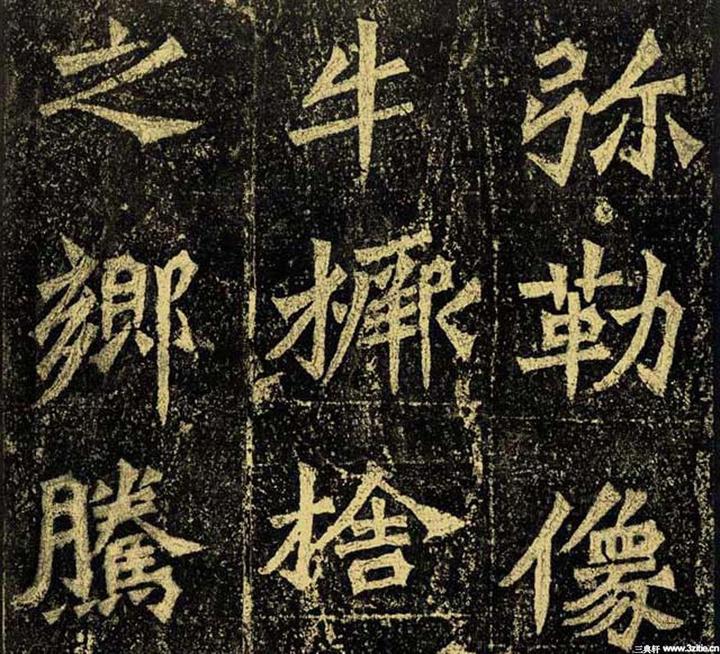 弥勒像
牛橛捨
之鄉騰
三典轩 www.3zitie.cn